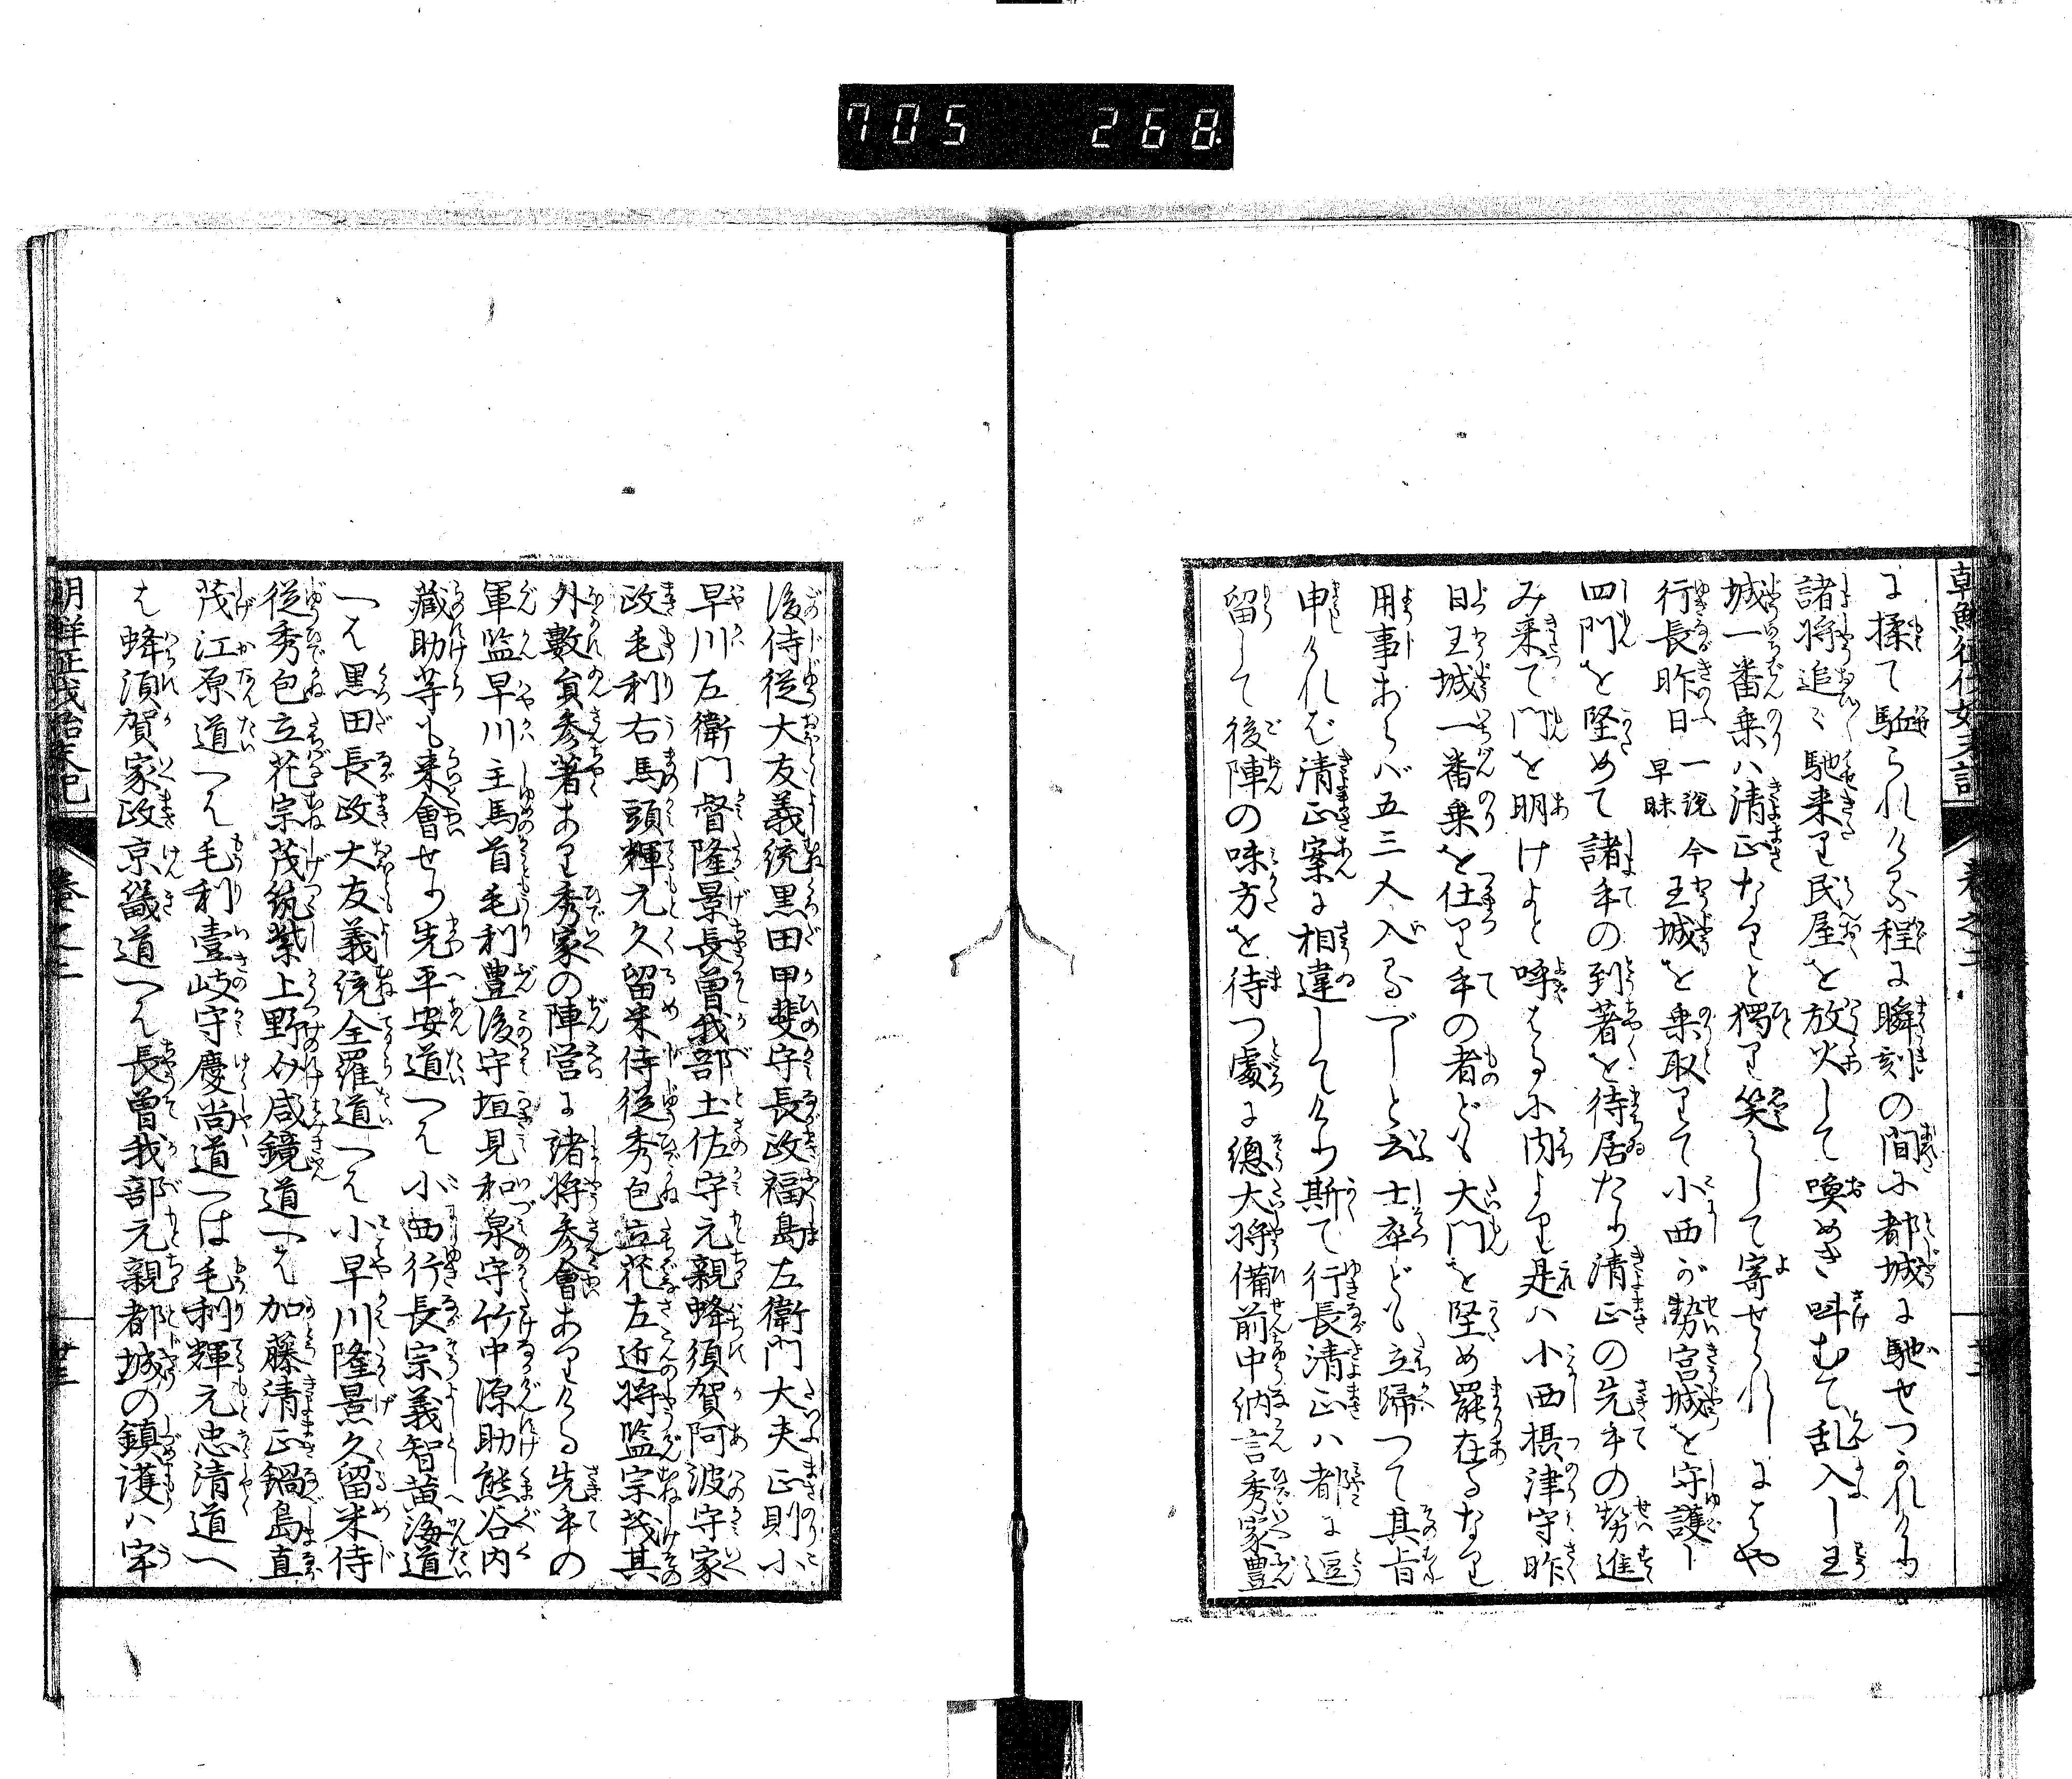 705 268
朝鮮征伐始末記 巻之二 廿三
に揉て駈られける程に瞬刻の間に都城に馳せつかれけり
諸将追々馳来り民屋を放火して喚めき叫むて乱入し王
城一番乗ハ清正なりと獨り笑ミして寄せられしにはや
行長昨日
一説早昧
今王城を乗取りて小西が勢宮城を守護し
四門を堅めて諸手の到著を待居たり清正の先手の勢進
み来て門を明けよと呼はるに内より是ハ小西摂津守昨
日王城一番乗を仕り手の者ども大門を堅め罷在るなり
用事あらバ五三人入るべしと云士卒ども立帰つて其旨
申けれバ清正案に相違してけり斯て行長清正ハ都に逗
留して後陣の味方を待つ處に總大将備前中納言秀家豊
後侍従大友義統黒田甲斐守長政福島左衛門大夫正則小
早川左衛門督隆景長曽我部土佐守元親蜂須賀阿波守家
政毛利右馬頭輝元久留米侍従秀包立花左近将監宗茂其
外數負参著あり秀家の陣営に諸将参會ありける先年の
軍監早川主馬首毛利豊後守垣見和泉守竹中源助熊谷内
藏助等も来會せり先平安道へハ小西行長宗義智黄海道
へハ黒田長政大友義統全羅道へハ小早川隆景久留米侍
従秀包立花宗茂筑紫上野介咸鏡道へハ加藤清正鍋島直
茂江原道へハ毛利壹岐守慶尚道へは毛利輝元忠清道へ
ハ蜂須賀家政京畿道へハ長曽我部元親都城の鎮護ハ宇
朝鮮征伐始末記 巻之二 廿三